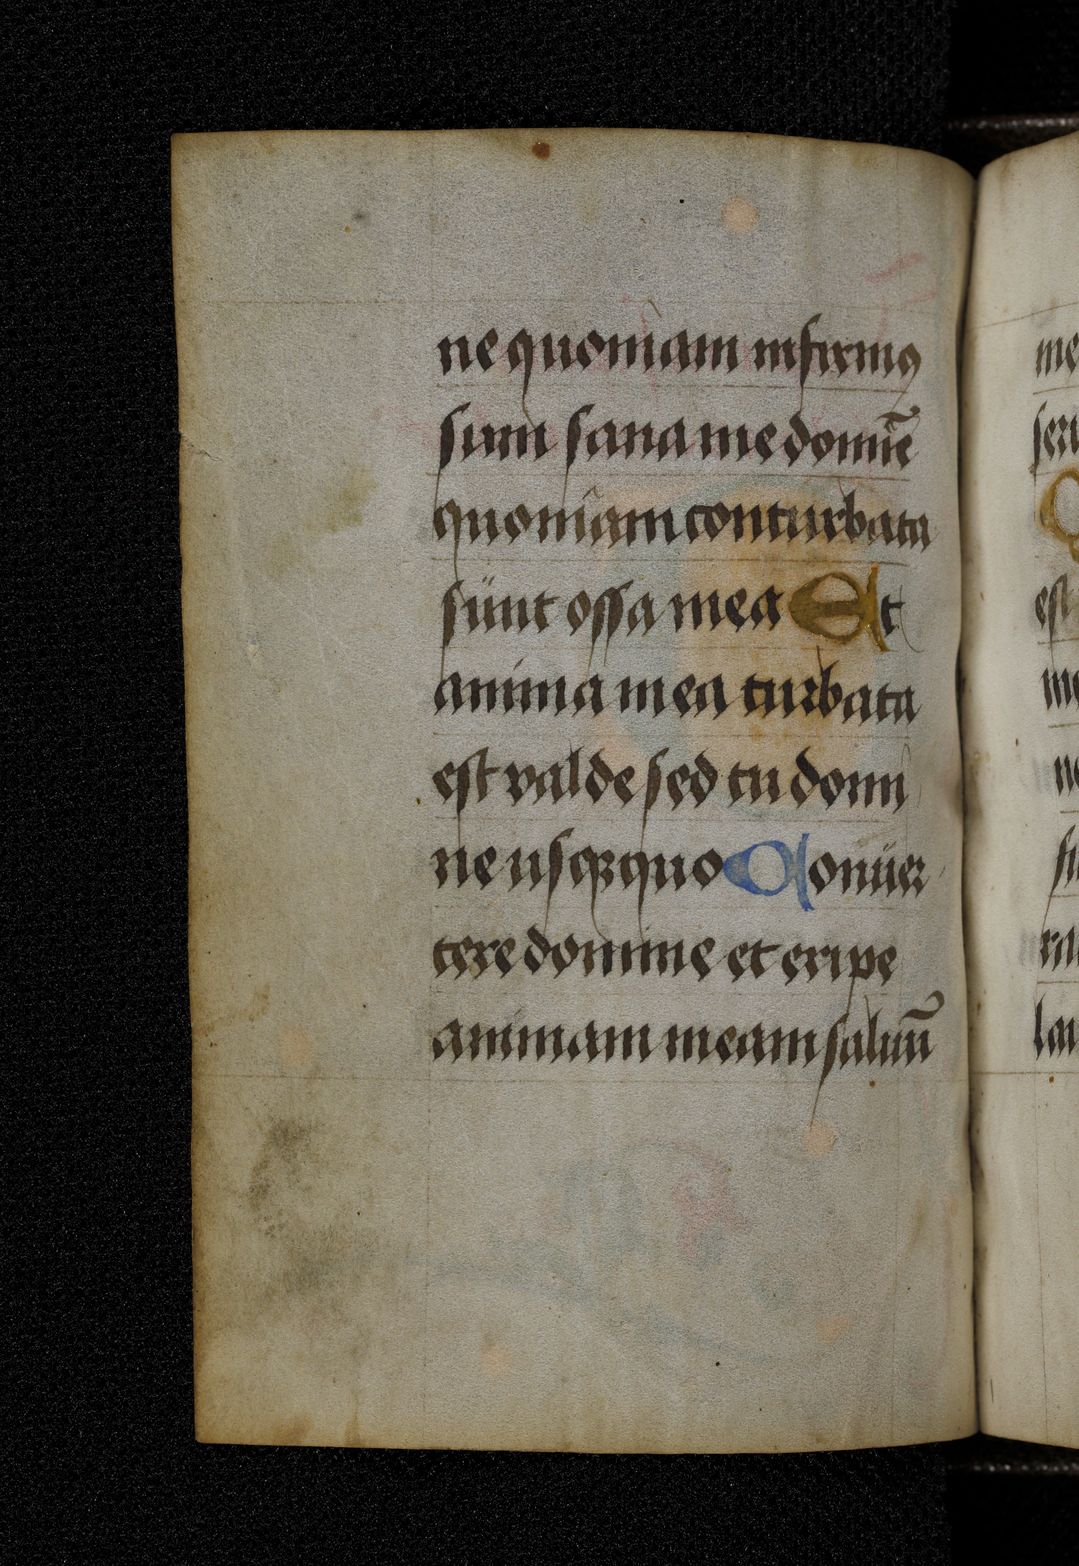 ne quoniam infirmꝰ
sum sana me domīe
quoniam conturbata
sunt ossa mea Et
anima mea turbata
est valde sed tu domi
ne usqꝫ quo Conuer
tere domine et eripe
animam meam saluū
me
ser
est
me
ne
su
ra
lau